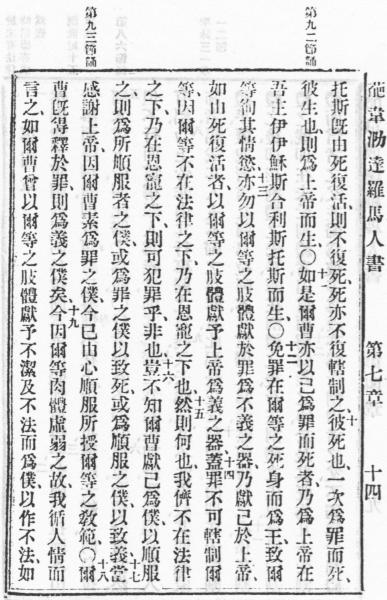 葩韋泐達羅馬人書 第七章 十四
第九二節誦
托斯旣由死復活則不復死死亦不復轄制之、十彼死也一次爲罪而死、
彼生也則爲上帝而生〇十一如是爾曹亦以己爲罪而死者乃爲上帝在
吾主伊伊穌斯合利斯托斯而生〇十二免罪在爾等之死身而爲王致爾
等徇其情慾十三亦勿以爾等之肢體獻於罪爲不義之器乃獻己於上帝、
如由死復活者以爾等之肢體獻予上帝爲義之器十四蓋罪不可轄制爾
等因爾等不在法律之下乃在恩寵之下也十五然則何也我儕不在法律
之下乃在恩寵之下則可犯罪乎非也十六豈不知爾曹獻己爲僕以順服
之則爲所順服者之僕或爲罪之僕以致死或爲順服之僕以致義十七當
第九三節誦
感謝上帝因爾曹素爲罪之僕今已由心順服所授爾等之敎範〇十八爾
曹旣得釋於罪則爲義之僕矣十九今因爾等肉體虛弱之故我循人情而
言之如爾曹曾以爾等之肢體獻予不潔及不法而爲僕以作不法如